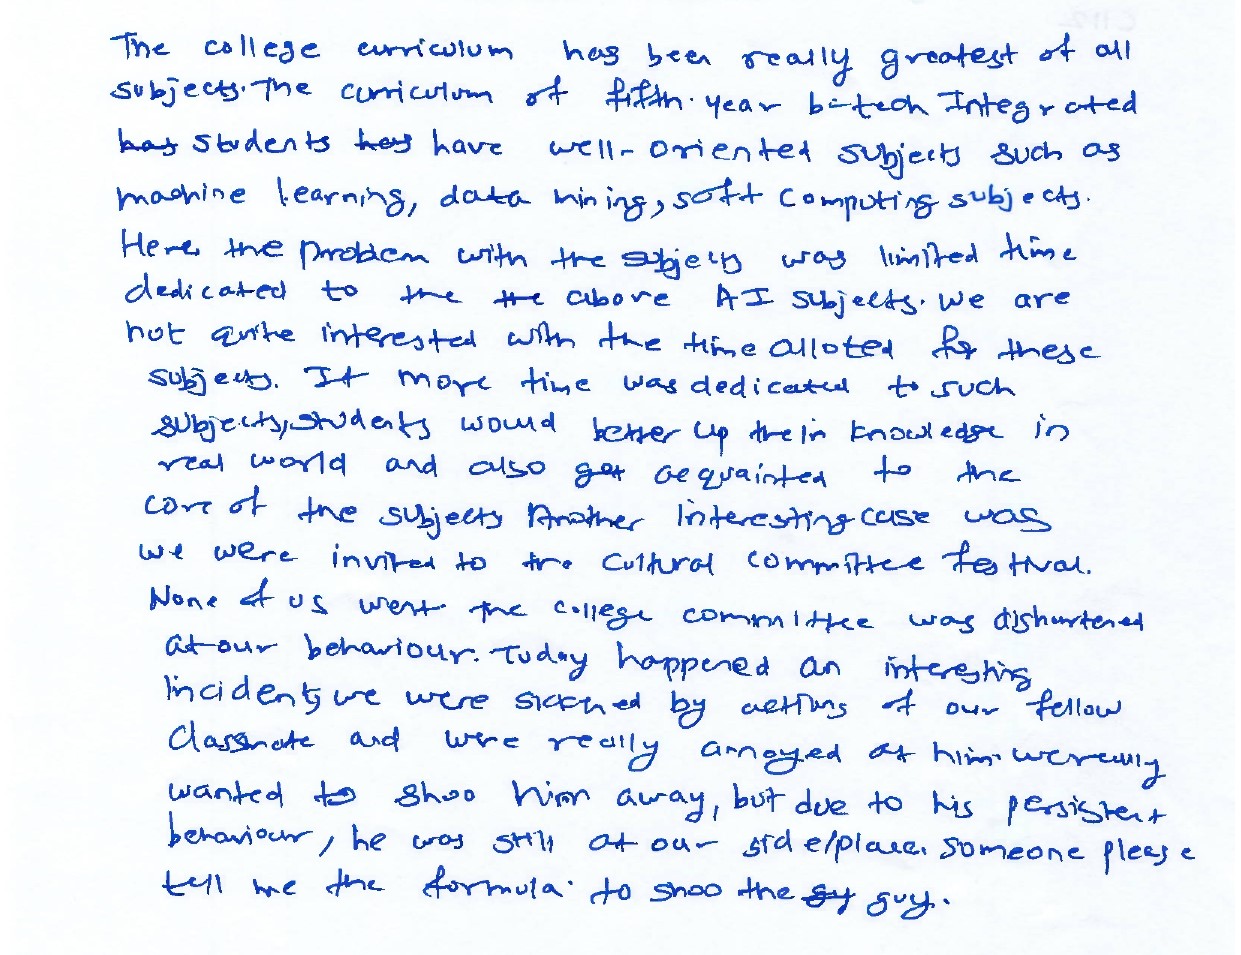 The college curriculum has been really greatest of all
subjects. The curriculum of fifth year b-tech Integrated
has students has have well-oriented subjects such as
machine learning, data mining, soft computing subjects.
Here the problem with the subjects was limited time
dedicated to the the above AI subjects. We are
not quite interested with the time alloted for these
subjects. If more time was dedicated to such
subjects, students would better up their knowledge in
real world and also get acquainted to the
core of the subjects Another interesting case was
we were invited to the cultural committee festival.
None of us went the college committee was dishurtened
at our behaviour. Today happened an interesting
incident, we were sickened by actions of our fellow
classmate and were really annoyed at him. we really
wanted to shoo him away, but due to his persistent
behaviour, he was still at our side/place. Someone please
tell me the formula to shoo the guy.